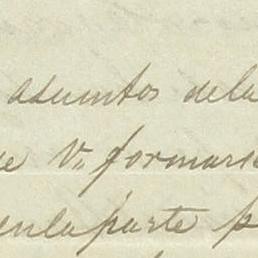 asuntos dela
e V. formarse
enla parte p